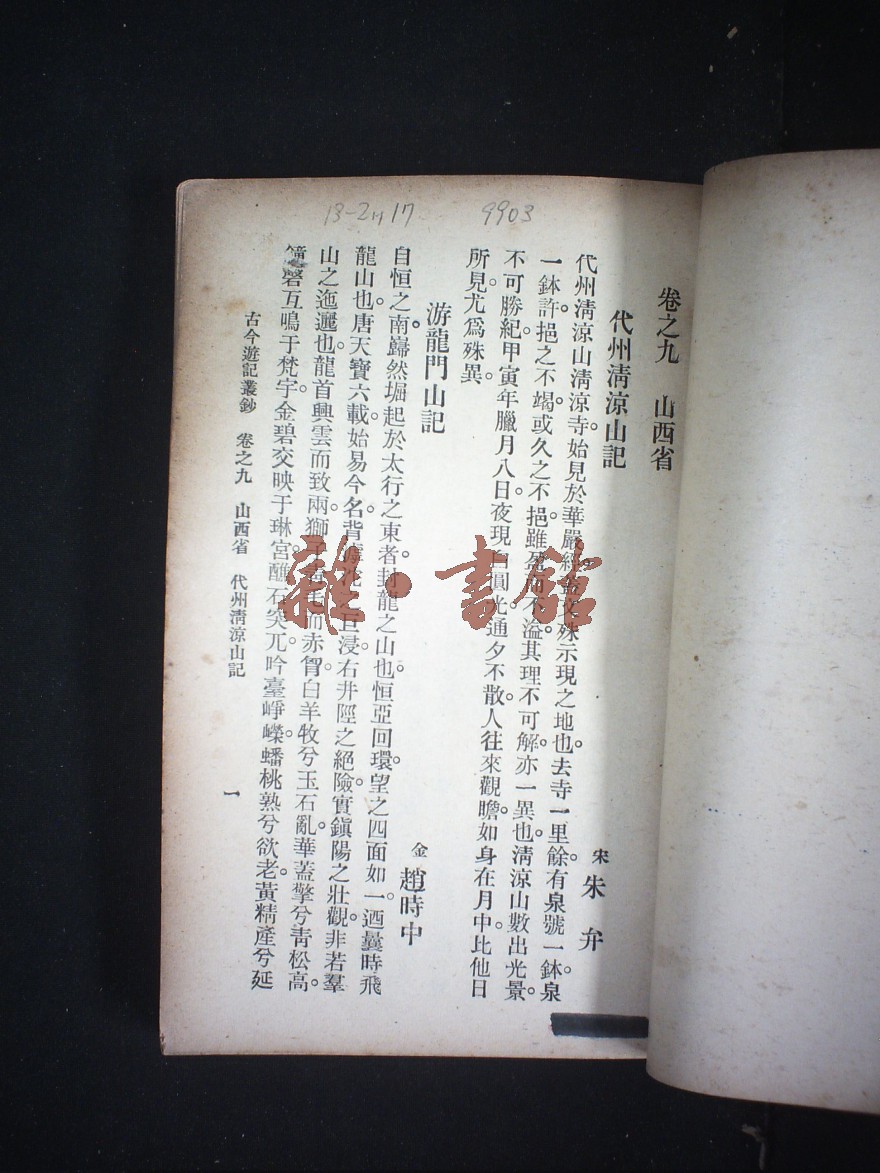 13-2 17 9903
卷之九 山西省
代州淸涼山記
宋 朱弁
代州淸涼山淸涼寺。始見於華嚴經。殊示現之地也。去寺一里餘。有泉號一鉢泉
一鉢許。挹之不竭。或久之不挹。雖盈而不溢。其理不可解。亦一異也。淸涼山數出光景
不可勝紀。甲寅年臘月八日夜。現白圓光。通夕不散。人往來觀瞻。如身在月中。比他日
所見尤爲殊異。
游龍門山記
金 趙時中
自恒之南。巋然堀起於太行之東者。封龍之山也。恒亞回環。望之四面如一。迺曩時飛
龍山也。唐天寶六載。始易今名。背 浸。右井陘之絕險。實鎭陽之壯觀。非若羣
山之迤邐也。龍首興雲而致兩。獅 而赤胷。白羊牧兮玉石亂。華蓋擎兮靑松高。
磬互鳴于梵宇。金碧交映于琳宮。醮石突兀。吟臺崢嶸。蟠桃熟兮欲老。黃精產兮延
古今遊記叢鈔 卷之九 山西省 代州淸涼山記
一
雜·書館